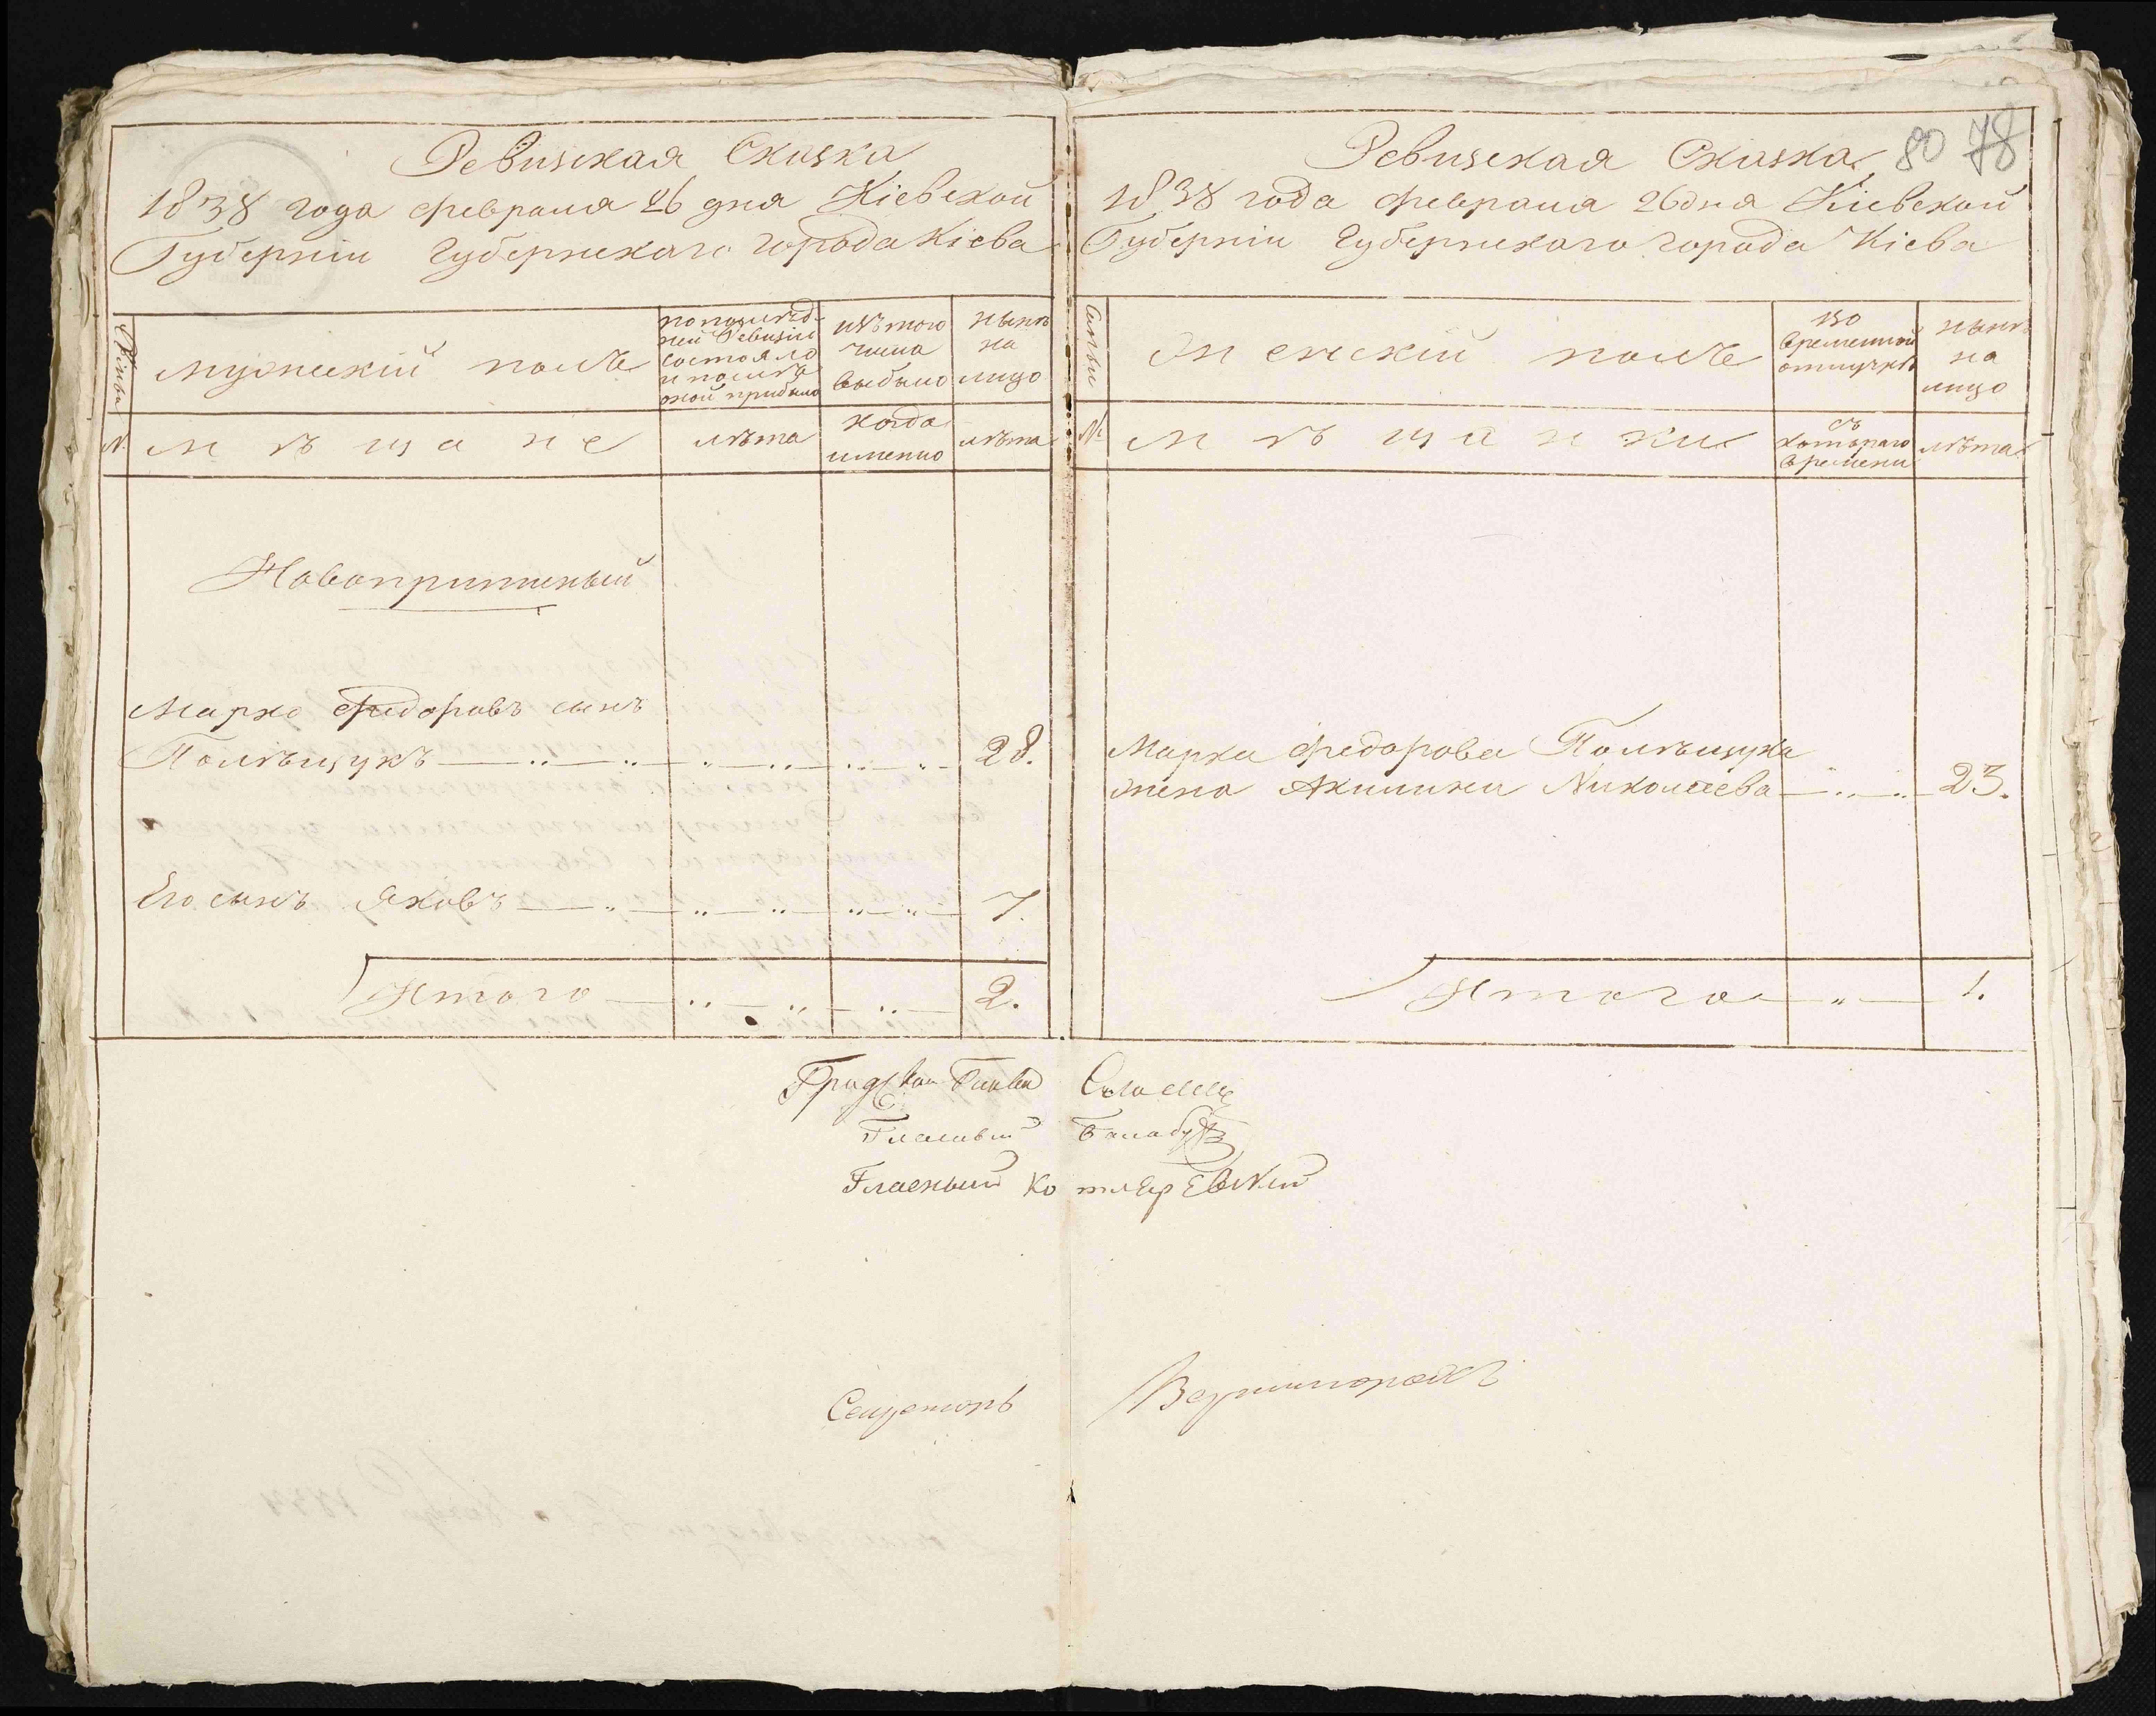 Ревизская Сказка
1838 года февраля 26 дня Кіевской
Губерніи Губернскаго города Кіева
Семьи
мужескій полъ
по послѣд-
ней Ревизіи
состояло
и послѣ
оной прибыло
изъ того
числа
выбыло
нынѣ
на
лицо
№
мѣщане
лѣта
когда
именно
лѣта
Новопришлый
Марко Федоровъ сынъ
Полѣщукъ 28.
Его сынъ Яковъ 7.
Итого 2.
80 78
Ревизская Сказка
1838 года февраля 26 дня Кіевской
Губерніи Губернскаго города Кіева
Семьи
Женскій полъ
во
временной
отлучкѣ
нынѣ
на
лицо
№
мѣщанки
съ
котораго
времени
лѣта
Марка Федорова Полѣщука
жена Акилина Николаева 23.
Итого 1.
Градской Глава
Гласный Балабуха
Гласный Котляревскій